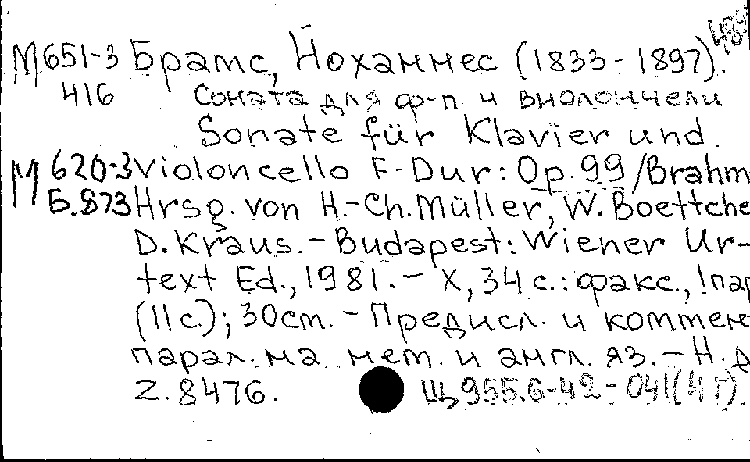 489
М651-3 Брамс, Йоханнес (1833-1897).
416 Соната для ф-п и виолончели
Sonate für Klavier und.
М620-3 Violoncello F-Dur: Op. 99 /Brahm
Б.873 Hrsg. von H.-Ch. Müller, W. Boettche
D. Kraus. - Budapest: Wiener Ur-
text Ed., 1981. - X, 34 с.: факс., 1 пар
(11 с.); 30 cm. - Предисл. и коммен
парал. на нем. и англ. яз. - Н. д
Z. 8476. Щ955.6-42-041(4Г).